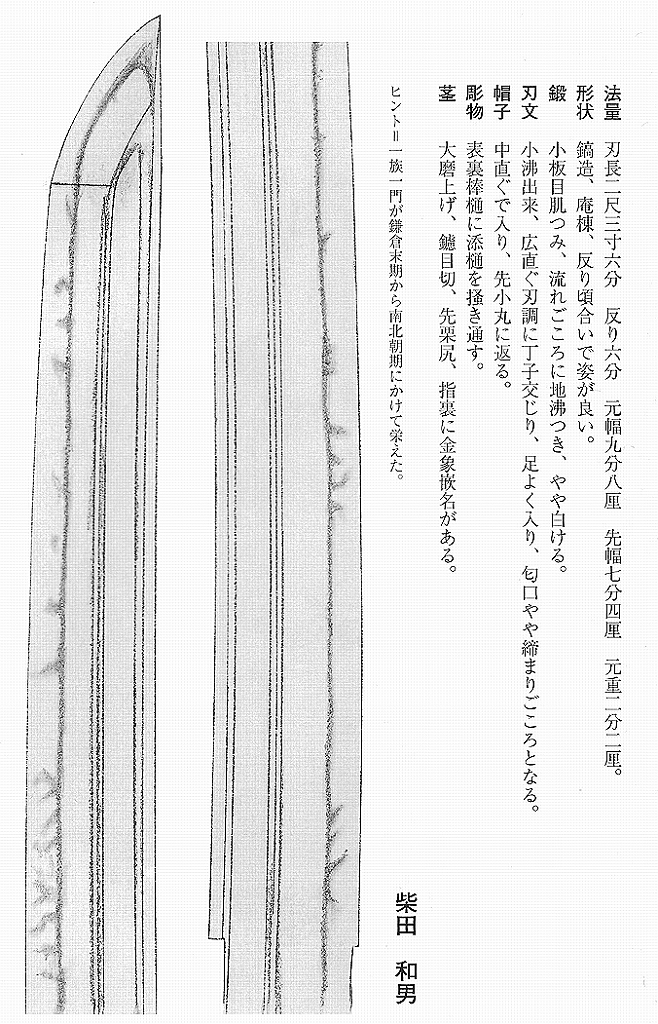 法量 刃長二尺三寸六分 反り六分 元幅九分八厘 先幅七分四厘 元重二分二厘。
形状 鎬造、庵棟、反り頃合いで姿が良い。
鍛 小板目肌つみ、流れごころに地沸つき、やや白ける。
刃文 小沸出来、広直ぐ刃調に丁子交じり、足よく入り、匂口やや締まりごころとなる。
帽子 中直ぐで入り、先小丸に返る。
彫物 表裏棒樋に添樋を掻き通す。
茎 大磨上げ、鑢目切、先栗尻、指裏に金象嵌名がある。
ヒント＝一族一門が鎌倉末期から南北朝期にかけて栄えた。
柴田 和男